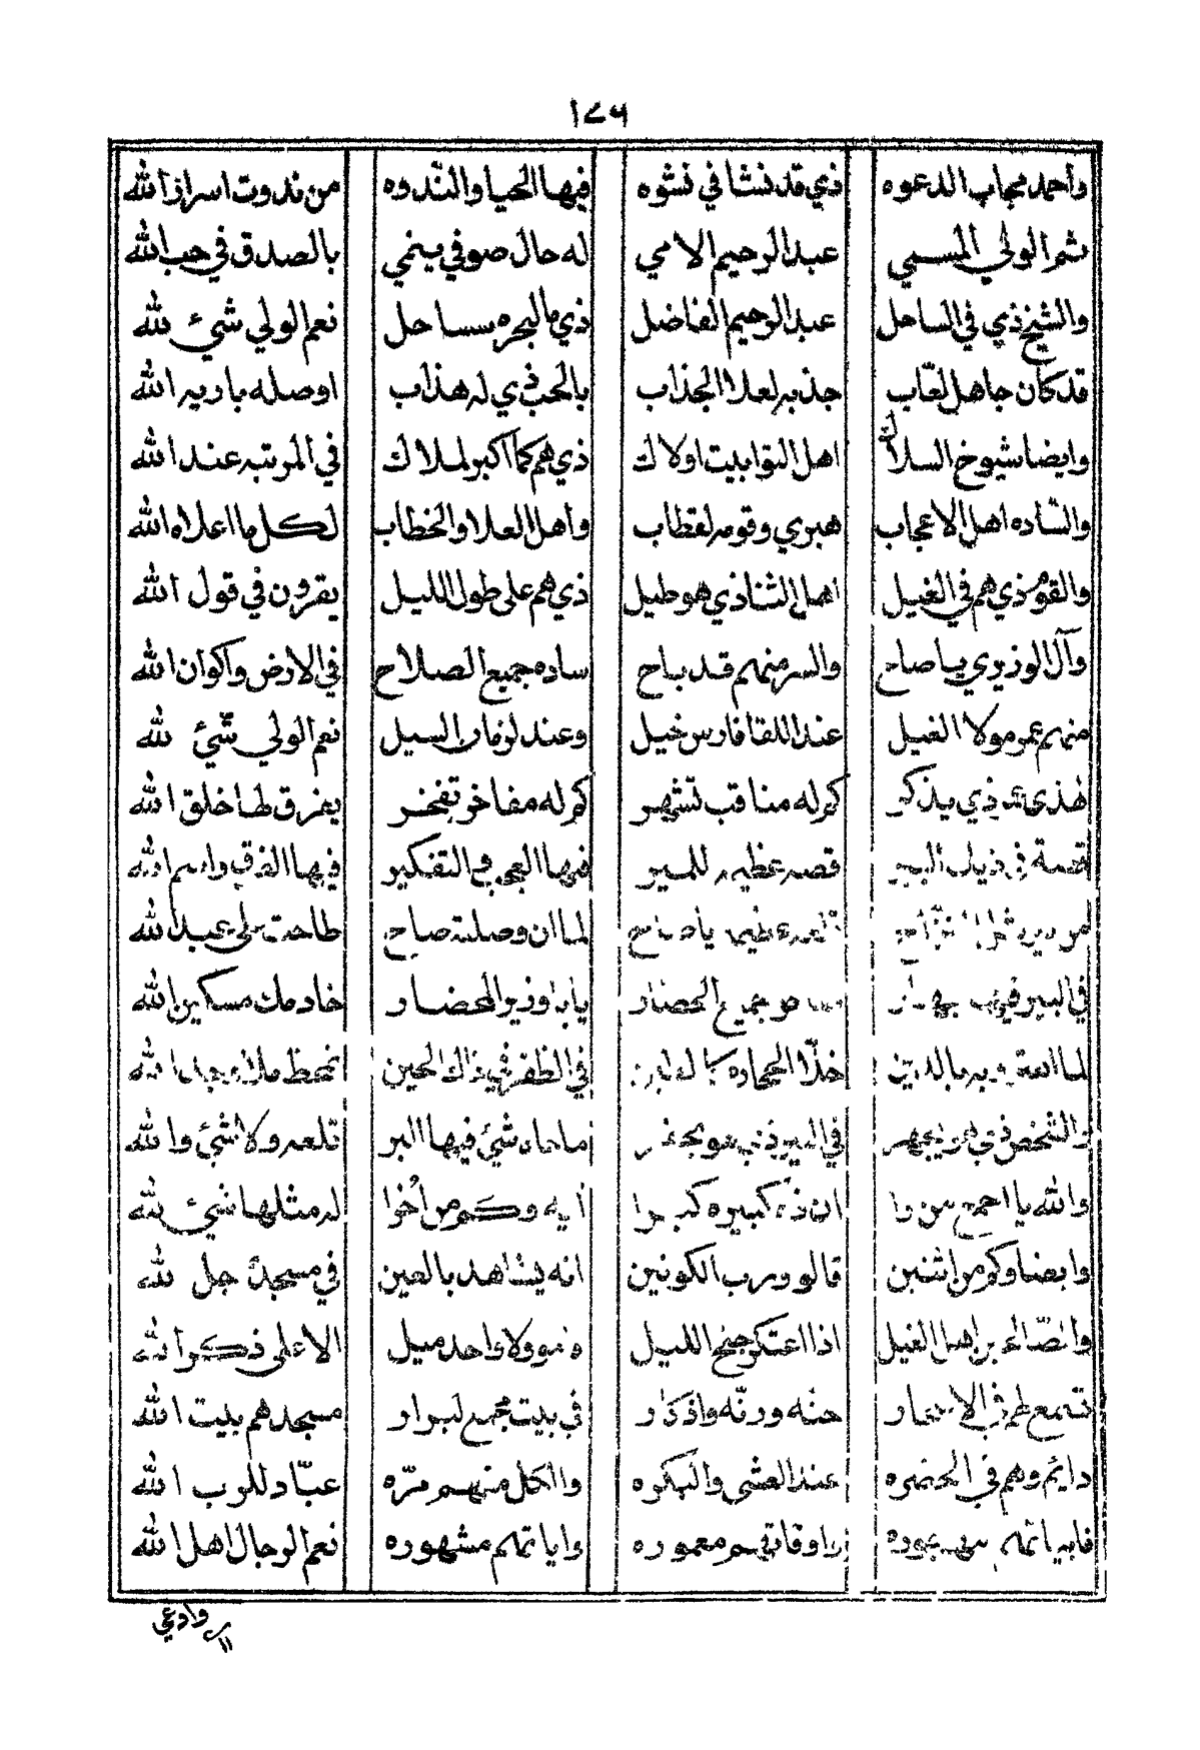 ١٧٦
واحمد مجاب الدعوه ذي قد نشا في نشوه فيها الحيا والندوه من ندوت اسرار الله
ثم الولي المسمي عبد الرحيم الامي له حال صوفي ينمي بالصدق في حب الله
والشيخ ذي في الساحل عبد الرحيم الفاضل ذي ما لبحره سساحل نعم الولي شيء لله
قد كان جاهل لعّاب جذبه لعلا الجذاب بالحب ذي له هذاب اوصله باريه الله
وايضا شيوخ السلاك اهل التوابيت اولاك ذي هم كما اكبر لملاك في المرتبه عند الله
والساده اهل الاعجاب هبري وقومه لقطاب واهل العلا والخطاب لكل ما اعلاه الله
والقوم ذي هم في الغيل اهل الثنا ذي هو طيل ذي هم على طول الليل يقرون في قول الله
وآل الوزيري يا صاح والسر منهم قد باح ساده جميع الصلاح في الارض واكوان الله
منهم عمر مولا الغيل عند اللقا فارس خيل وعند لوفان السيل نعم الولي شيء لله
ذي يذكر كم له مناقب تشهر كم له مفاخر تفخر يفرق لها خلق الله
قصة في البير قصه عظيمه للمير فيها العجب في التفكير فيها الفرق واسم الله
لما ان وصلته صاح طاحت على عبد الله
في البير فيها جميع الحضار يا با وزير المحضار خادمك مسكين الله
لما خلّا الحجاره في الظفر في ذاك الحين تحفظ
والشخص ذي هو يجهر في البير ما حاه شيء فيها البر تلعه ولا شيء والله
والله يا من ان ذه كبيره آيه وكم من اخوا له مثلها شيء لله
وايضا وكم من اثنين قالو ورب الكونين انه يشاهد بالعين في مسجد جل لله
اهل الغيل اذا اعتكر جنح الليل واحد ميل الا على ذكر الله
تسمع لهم في الاسحار حنه ورنّه واذكار في بيت مجمع لبرار مسجدهم بيت الله
دايم وهم في الحضره عند العشي والبكره والكل منهم مرّه عبّاد للرب الله
واوقاتهم معموره واياتهم مشهوره نعم الرجال اهل الله
وادعي